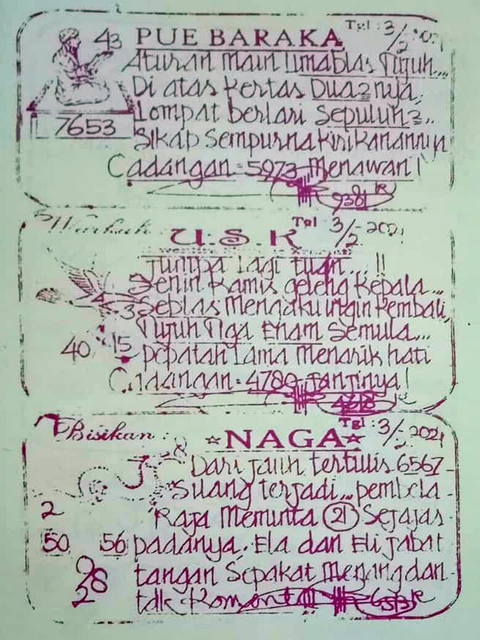 PUE BARAKA
Tgl : 3/2 2021
43
7653
Aturan main Limablas Tujuh...
Di atas Kertas Duaznya
Lompat berlari Sepuluh3..
Sikap Sempurna Kiri Kanannya
Cadangan = 5973 Menawan!
9301
U.S.K
Tgl 3/2 2021
Jumpa lagi tuan...!!
Senin Kamis geleng Kepala...
Seblas Mengaku ingin Kembali,
Tujuh Tiga Enam Semula...
pepatah lama Menarik hati
Cadangan = 4780 Jantinya!
3
40
15
Bisikan :
NAGA
Tgl : 3/2 2021
Dari jauh tertulis 6567
Suang terjadi... pembela
Raja Meminta 21 Sejajar
padanya. Ela dan Eli jabat
tangan Sepakat Menang dan
tdk Koment
2
50
56
8
2